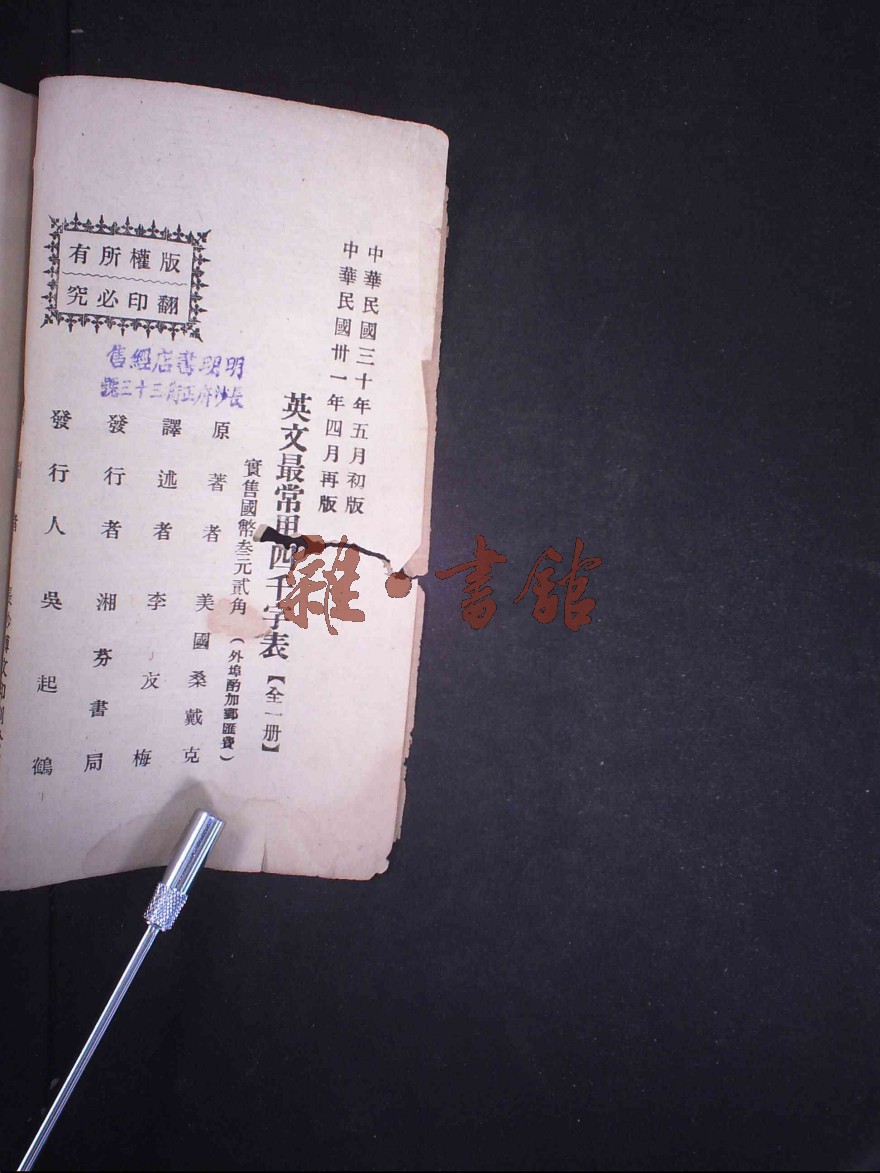 中華民國三十年五月初版
中華民國卅一年四月再版
英文最常用四千字表【全一册】
實售國幣叁元貳角（外埠酌加郵匯費）
原著者 美國桑戴克
譯述者 李友梅
發行者 湘芬書局
發行人 吳起鶴
版權所有
翻印必究
明明書店經售
長沙府正街三十三號
雜·書館